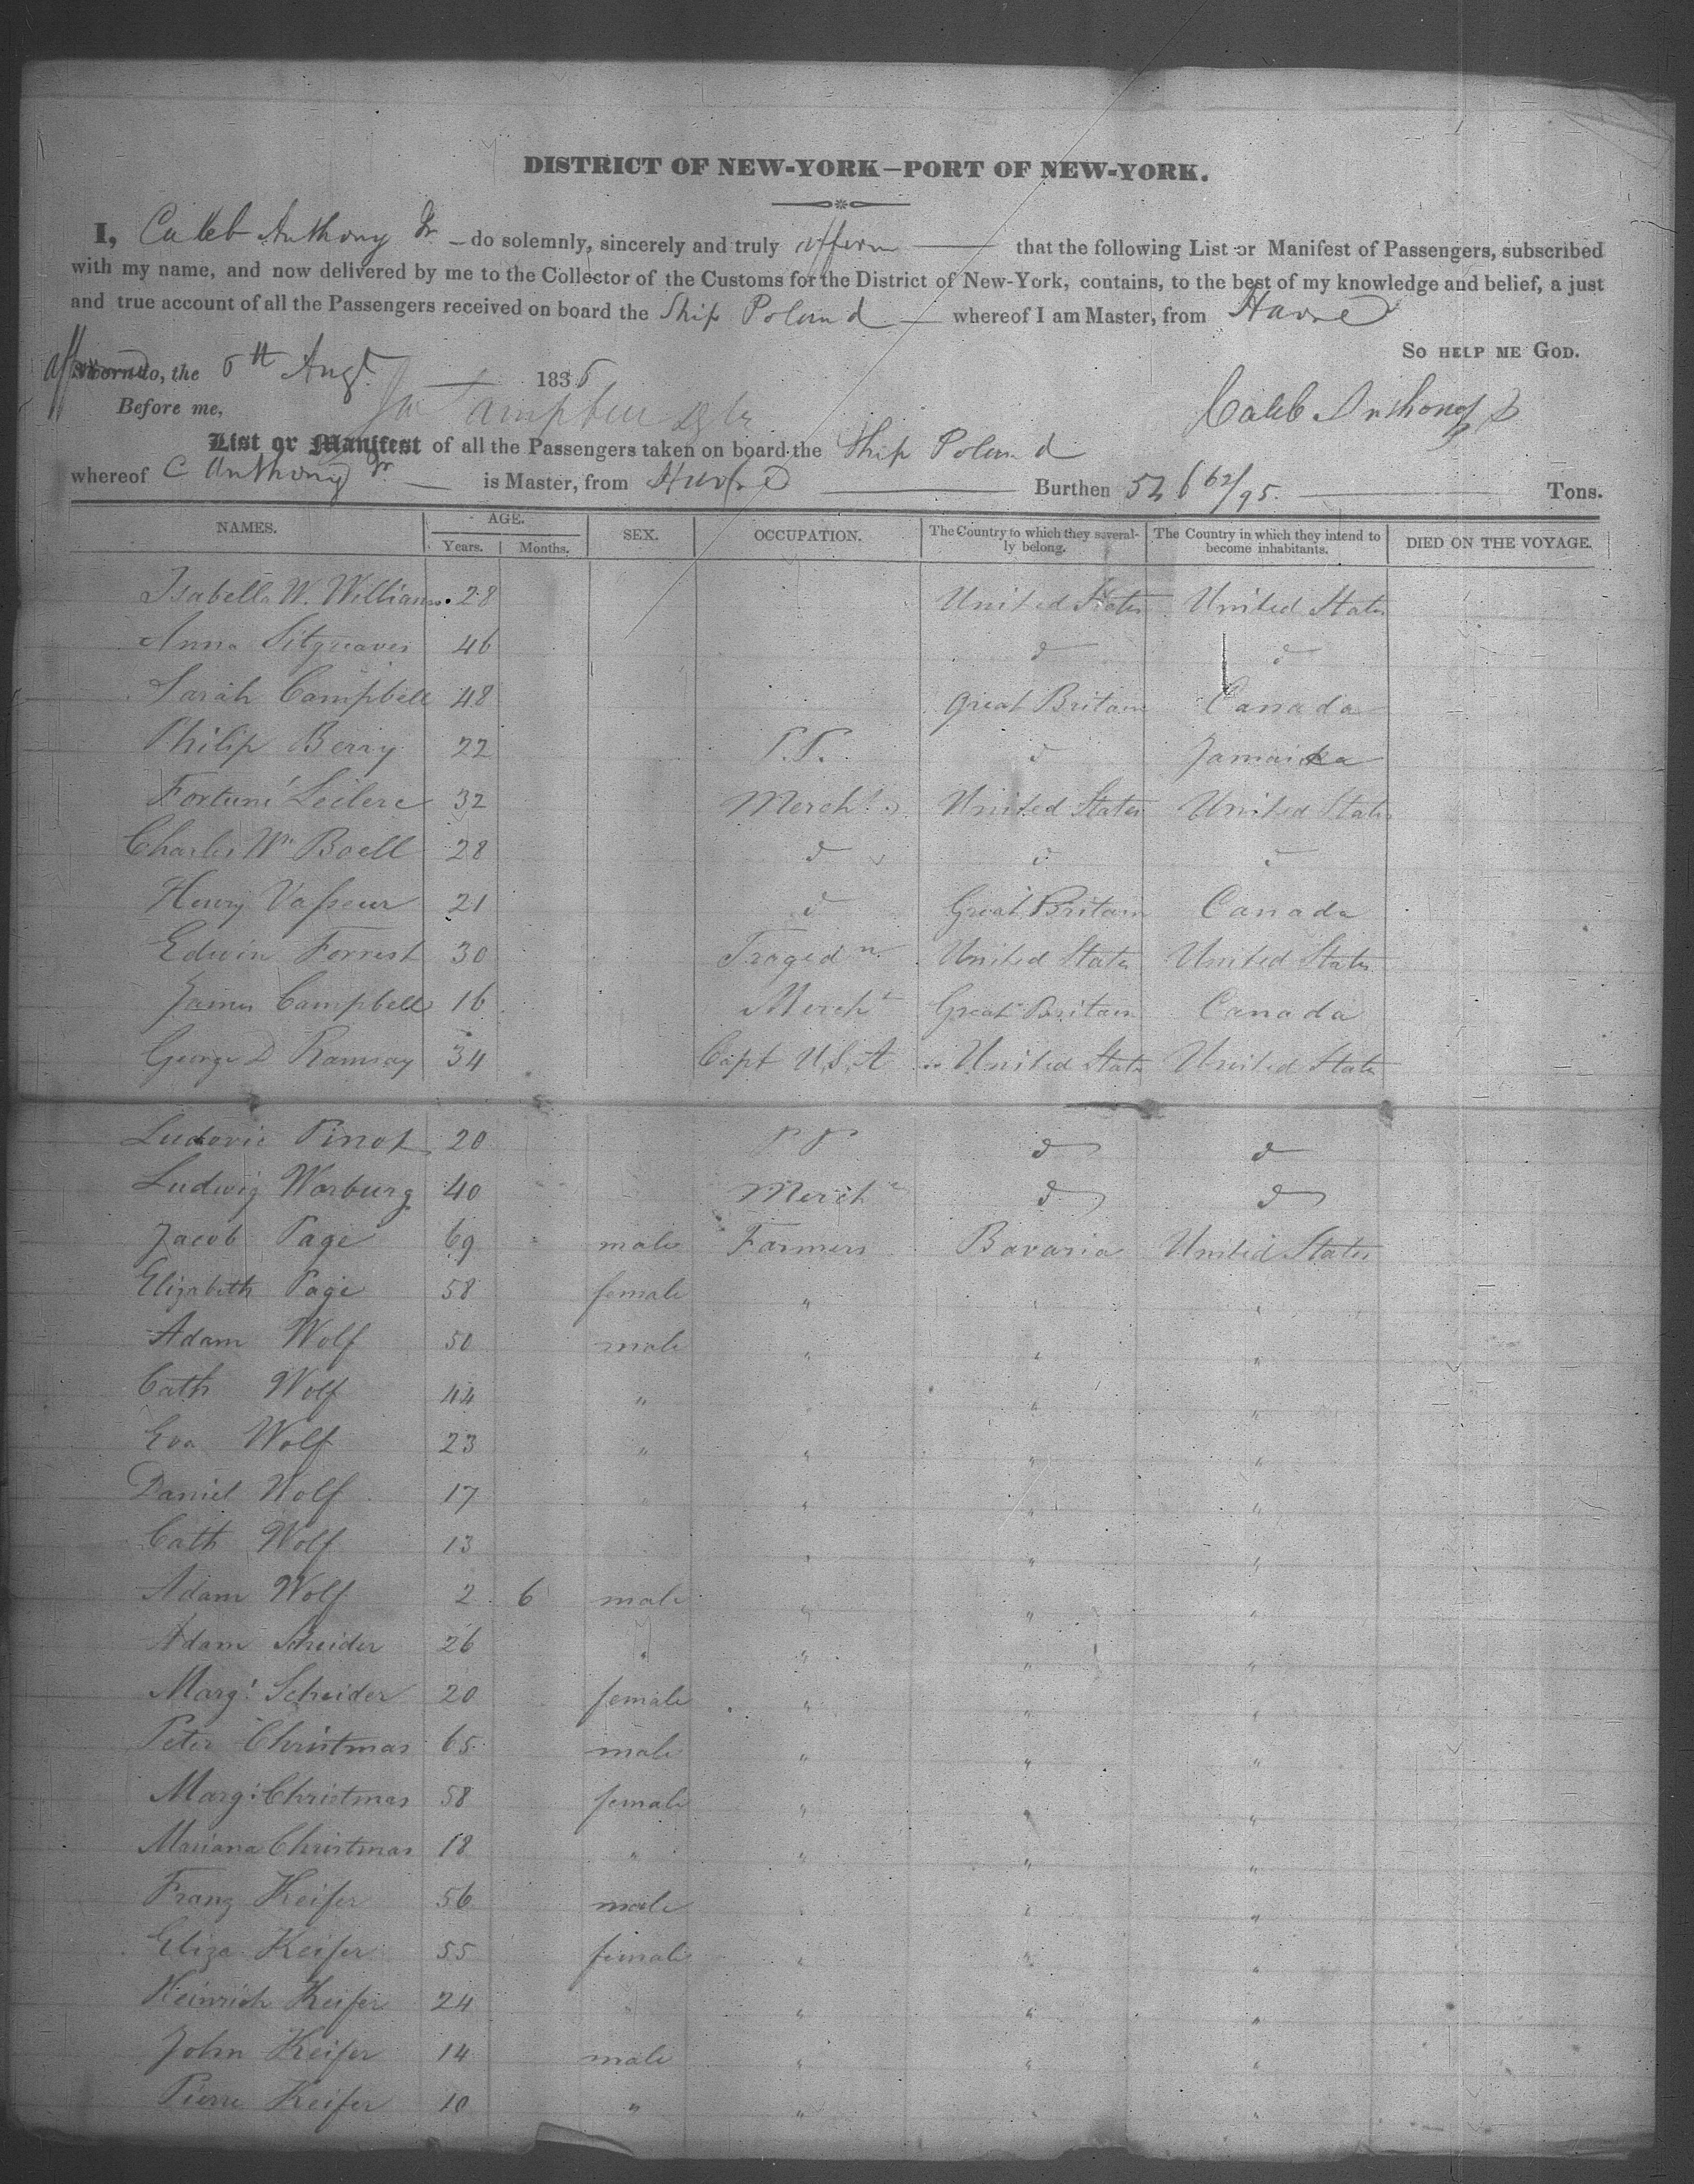 DISTRICT OF NEW-YORK—PORT OF NEW-YORK.
I, Caleb Anthony Jr — do solemnly, sincerely and truly affirm — that the following List or Manifest of Passengers, subscribed
with my name, and now delivered by me to the Collector of the Customs for the District of New-York, contains, to the best of my knowledge and belief, a just
and true account of all the Passengers received on board the Ship Poland — whereof I am Master, from Havre
SO HELP ME GOD.
to, the 6th Augt 1836
Before me, Caleb Anthony Jr
List or Manifest of all the Passengers taken on board the Ship Poland
whereof C Anthony Jr. — is Master, from Havre — Burthen 526 62/95. — Tons.
NAMES. AGE. Years. Months. SEX. OCCUPATION. The Country to which they severally belong. The Country in which they intend to become inhabitants. DIED ON THE VOYAGE.
Isabella W. Williams. 28 United States United States
Anna Sitgreaves 46 d d
Sarah Campbell 48 Great Britain Canada
Philip Berry 22 P.P. d Jamaica
Fortuné Leclere 32 Mercht United States United States
Charles Wm Boell 28 d d d
Henry Vasseur 21 d Great Britain Canada
Edwin Forrest 30 Tragedn United States United States
James Campbell 16 Mercht Great Britain Canada
George D Ramsay 34 Capt U.S.A United States United States
Ludovic Pinot 20 P P d d
Ludwig Warburg 40 Mercht d d
Jacob Page 69 male Farmers Bavaria United States
Elizabeth Page 58 female " " "
Adam Wolf 50 male " " "
Cath Wolf 44 " " "
Eva Wolf 23 " " " "
Daniel Wolf 17 " " " "
Cath Wolf 13 " " "
Adam Wolf 2 6 male " " "
Adam Scheider 26 " " " "
Margt Scheider 20 female " " "
Peter Christmas 65 male " " "
Margt Christmas 58 female " " "
Mariana Christmas 18 " " " "
Franz Keifer 56 male " " "
Eliza Keifer 55 female " " "
Heinrich Keifer 24 " " " "
John Keifer 14 male " " "
Pierre Keifer 10 " " " "